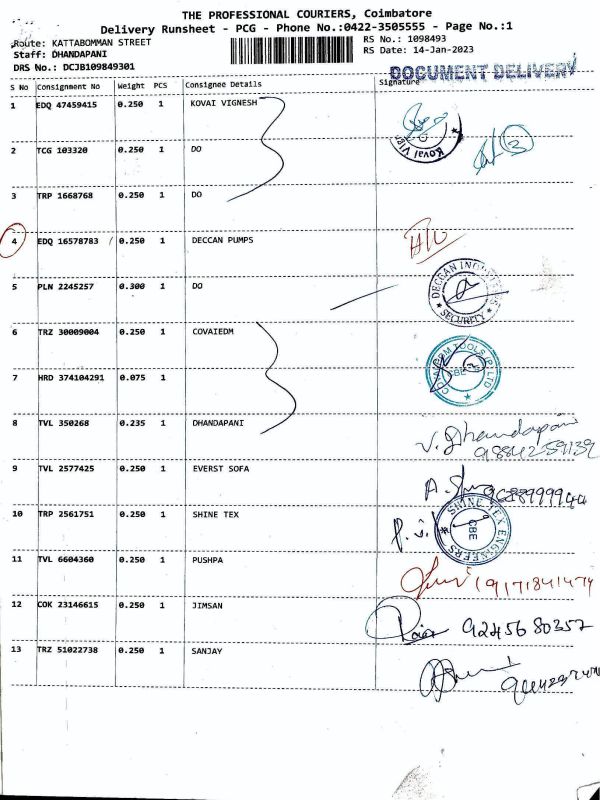 THE PROFESSIONAL COURIERS, Coimbatore
Delivery Runsheet - PCG - Phone No.:0422-3505555 - Page No.:1
Route: KATTABOMMAN STREET
RS No.: 1098493
Staff: DHANDAPANI
RS Date: 14-Jan-2023
DRS No.: DCJB109849301
DOCUMENT DELIVERY
S No Consignment No Weight PCS Consignee Details Signature
1 EDQ 47459415 0.250 1 KOVAI VIGNESH
2 TCG 103320 0.250 1 DO 3
3 TRP 1668768 0.250 1 DO
4 EDQ 16578783 0.250 1 DECCAN PUMPS
5 PLN 2245257 0.300 1 DO
DECCAN
SECURITY
6 TRZ 30009004 0.250 1 COVAIEDM
TOOLS (P) LTD
CBE
7 HRD 374104291 0.075 1
8 TVL 350268 0.235 1 DHANDAPANI V. Dhandapani
9884259139
9 TVL 2577425 0.250 1 EVERST SOFA
10 TRP 2561751 0.250 1 SHINE TEX
SHINE TEX ENGINEERS
CBE
11 TVL 6604360 0.250 1 PUSHPA
12 COK 23146615 0.250 1 JIMSAN 9245680357
13 TRZ 51022738 0.250 1 SANJAY